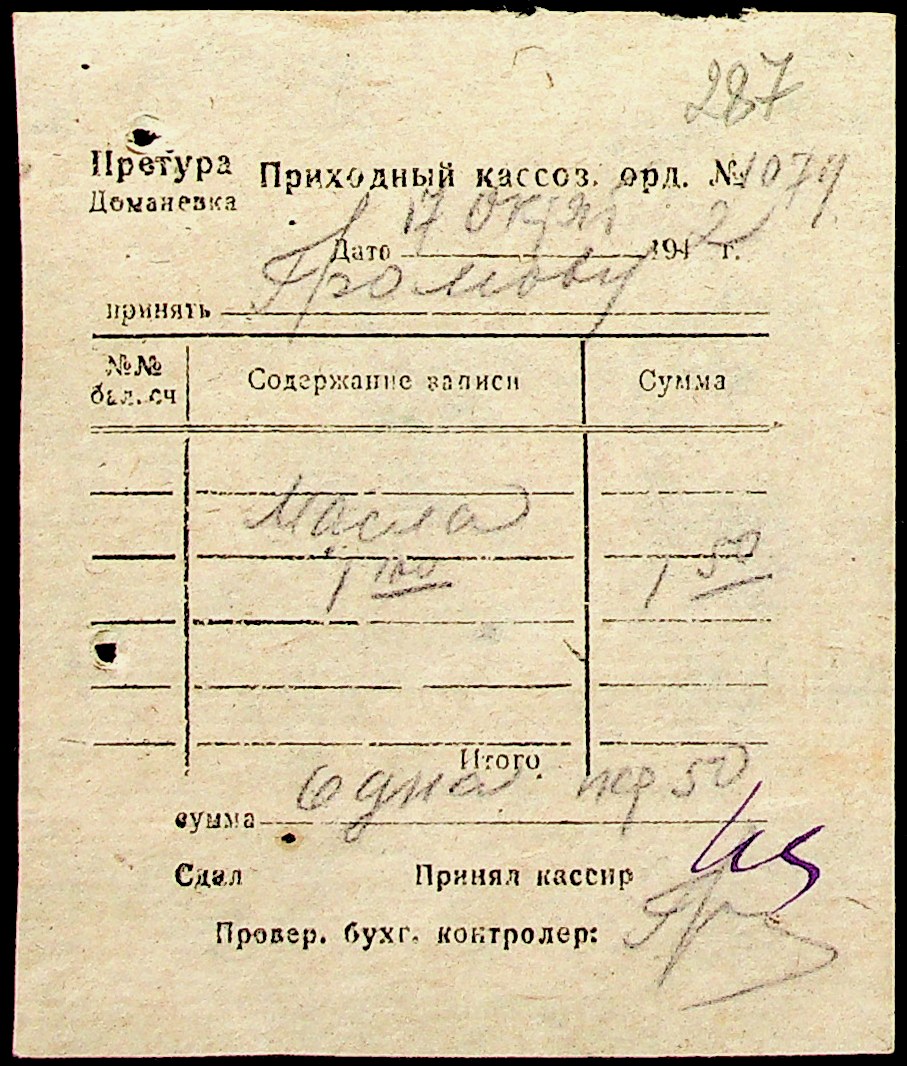 287
Претура Приходный кассов. орд. № 1079
Доманевка
Дато 17 Октя 1942 г.
принять Громову
№№ бал. сч Содержание записи Сумма
Масла
1 50
Итого
сумма Одна мар 50
Сдал Принял кассир
Провер. бухг. контролер: